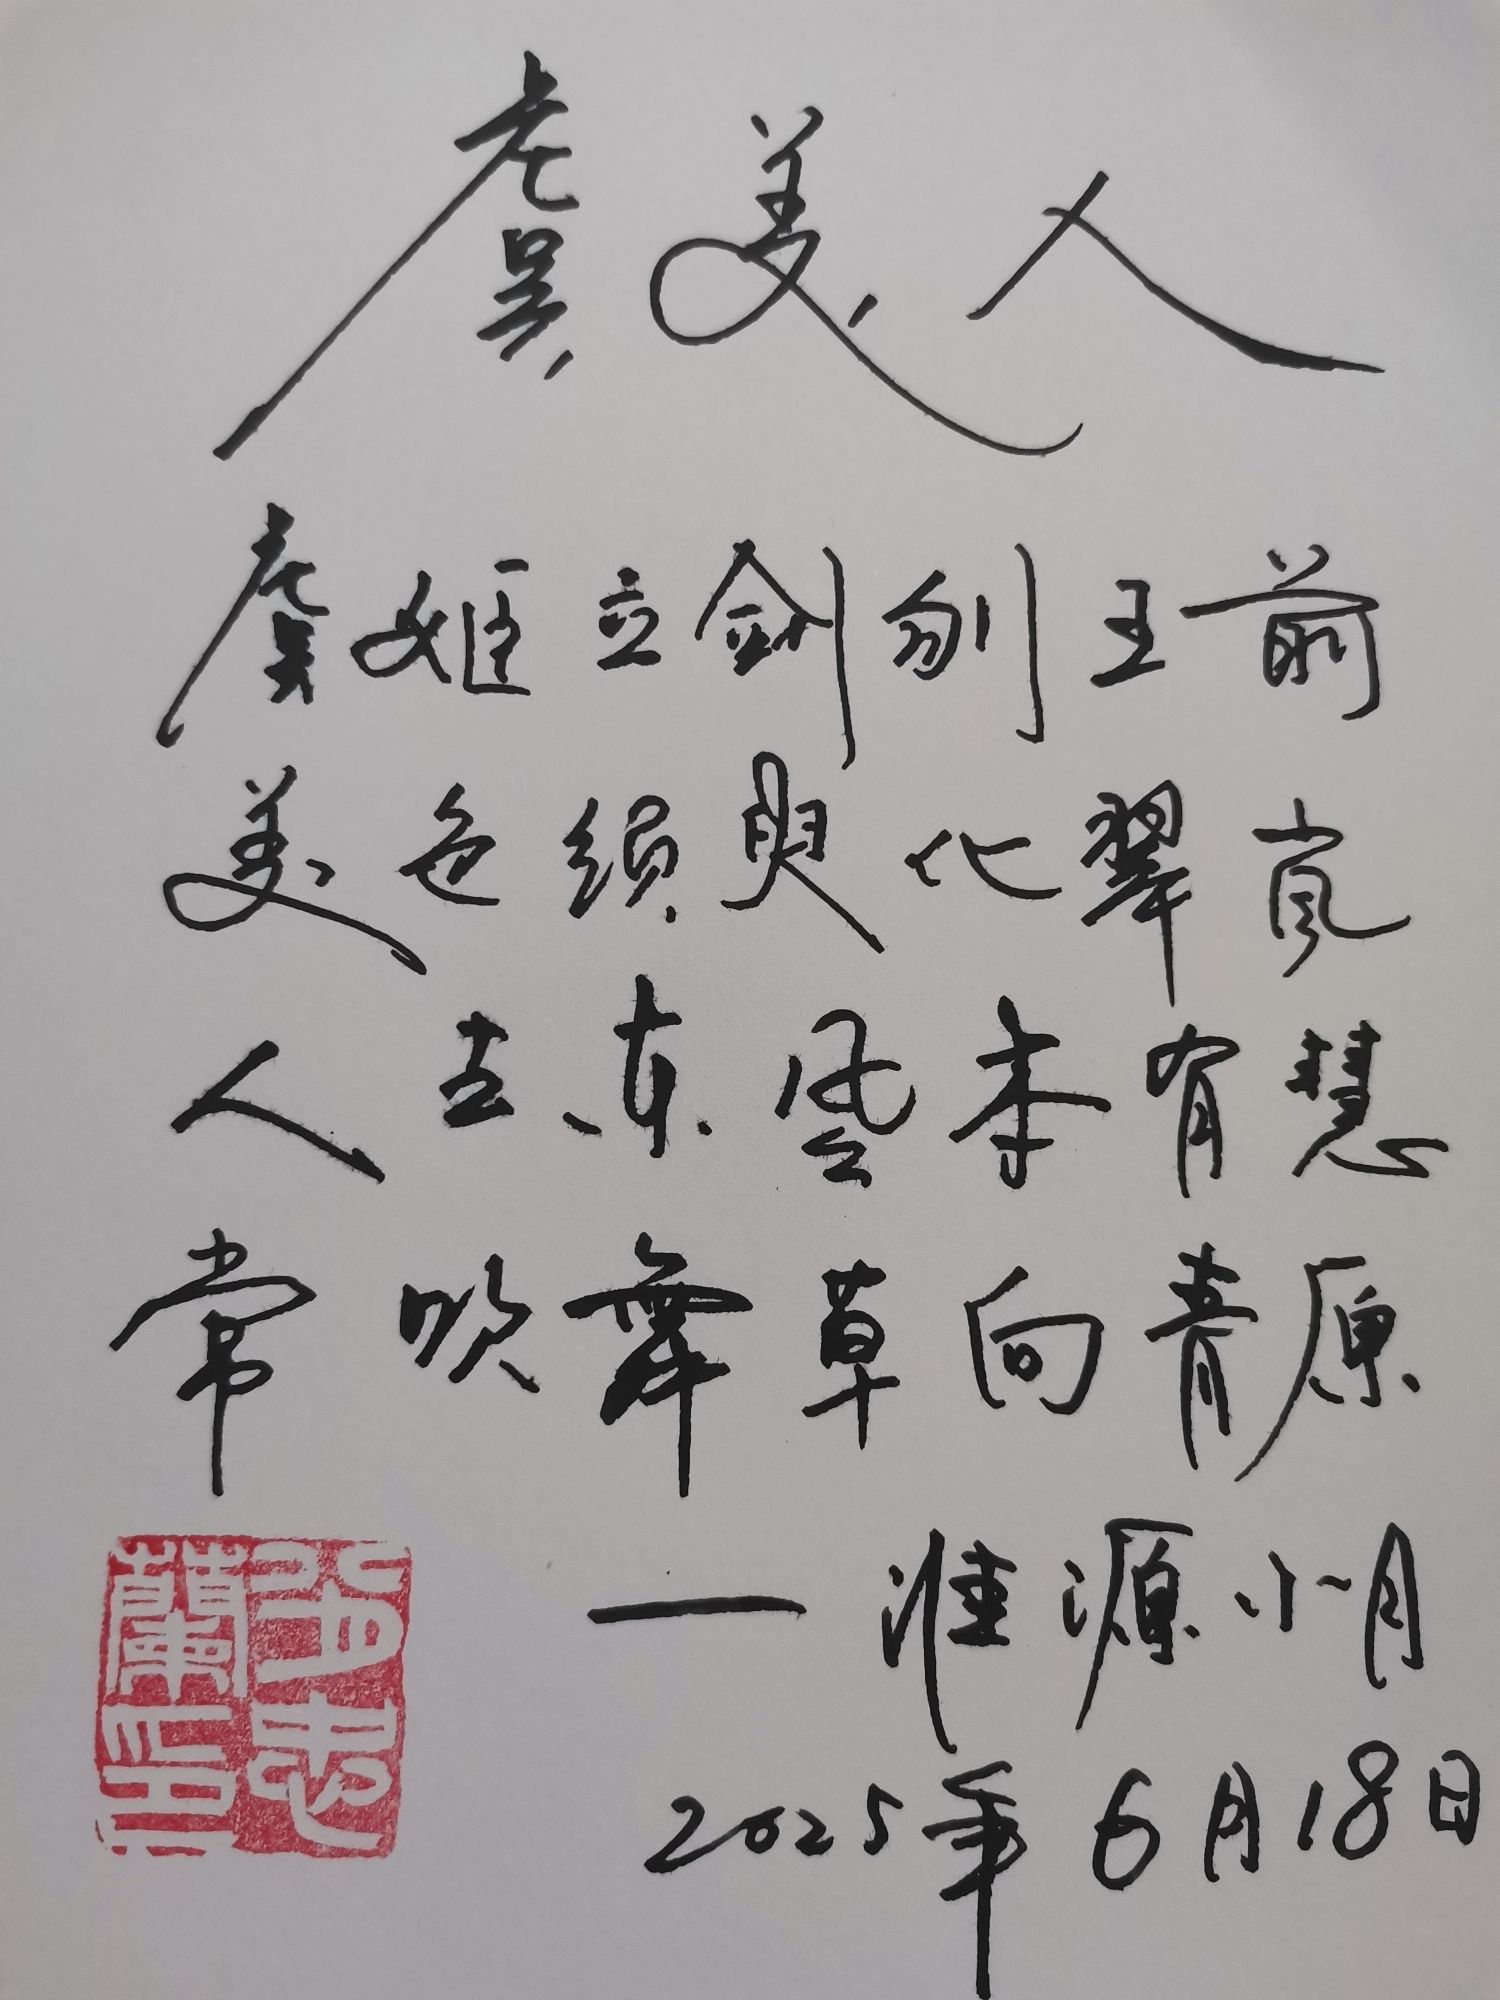 虞美人
虞姬立剑刎王前
美色须臾化翠岚
人去东风本有慧
常吹舞草向青原
一淮源小月
2025年6月18日
蘭印